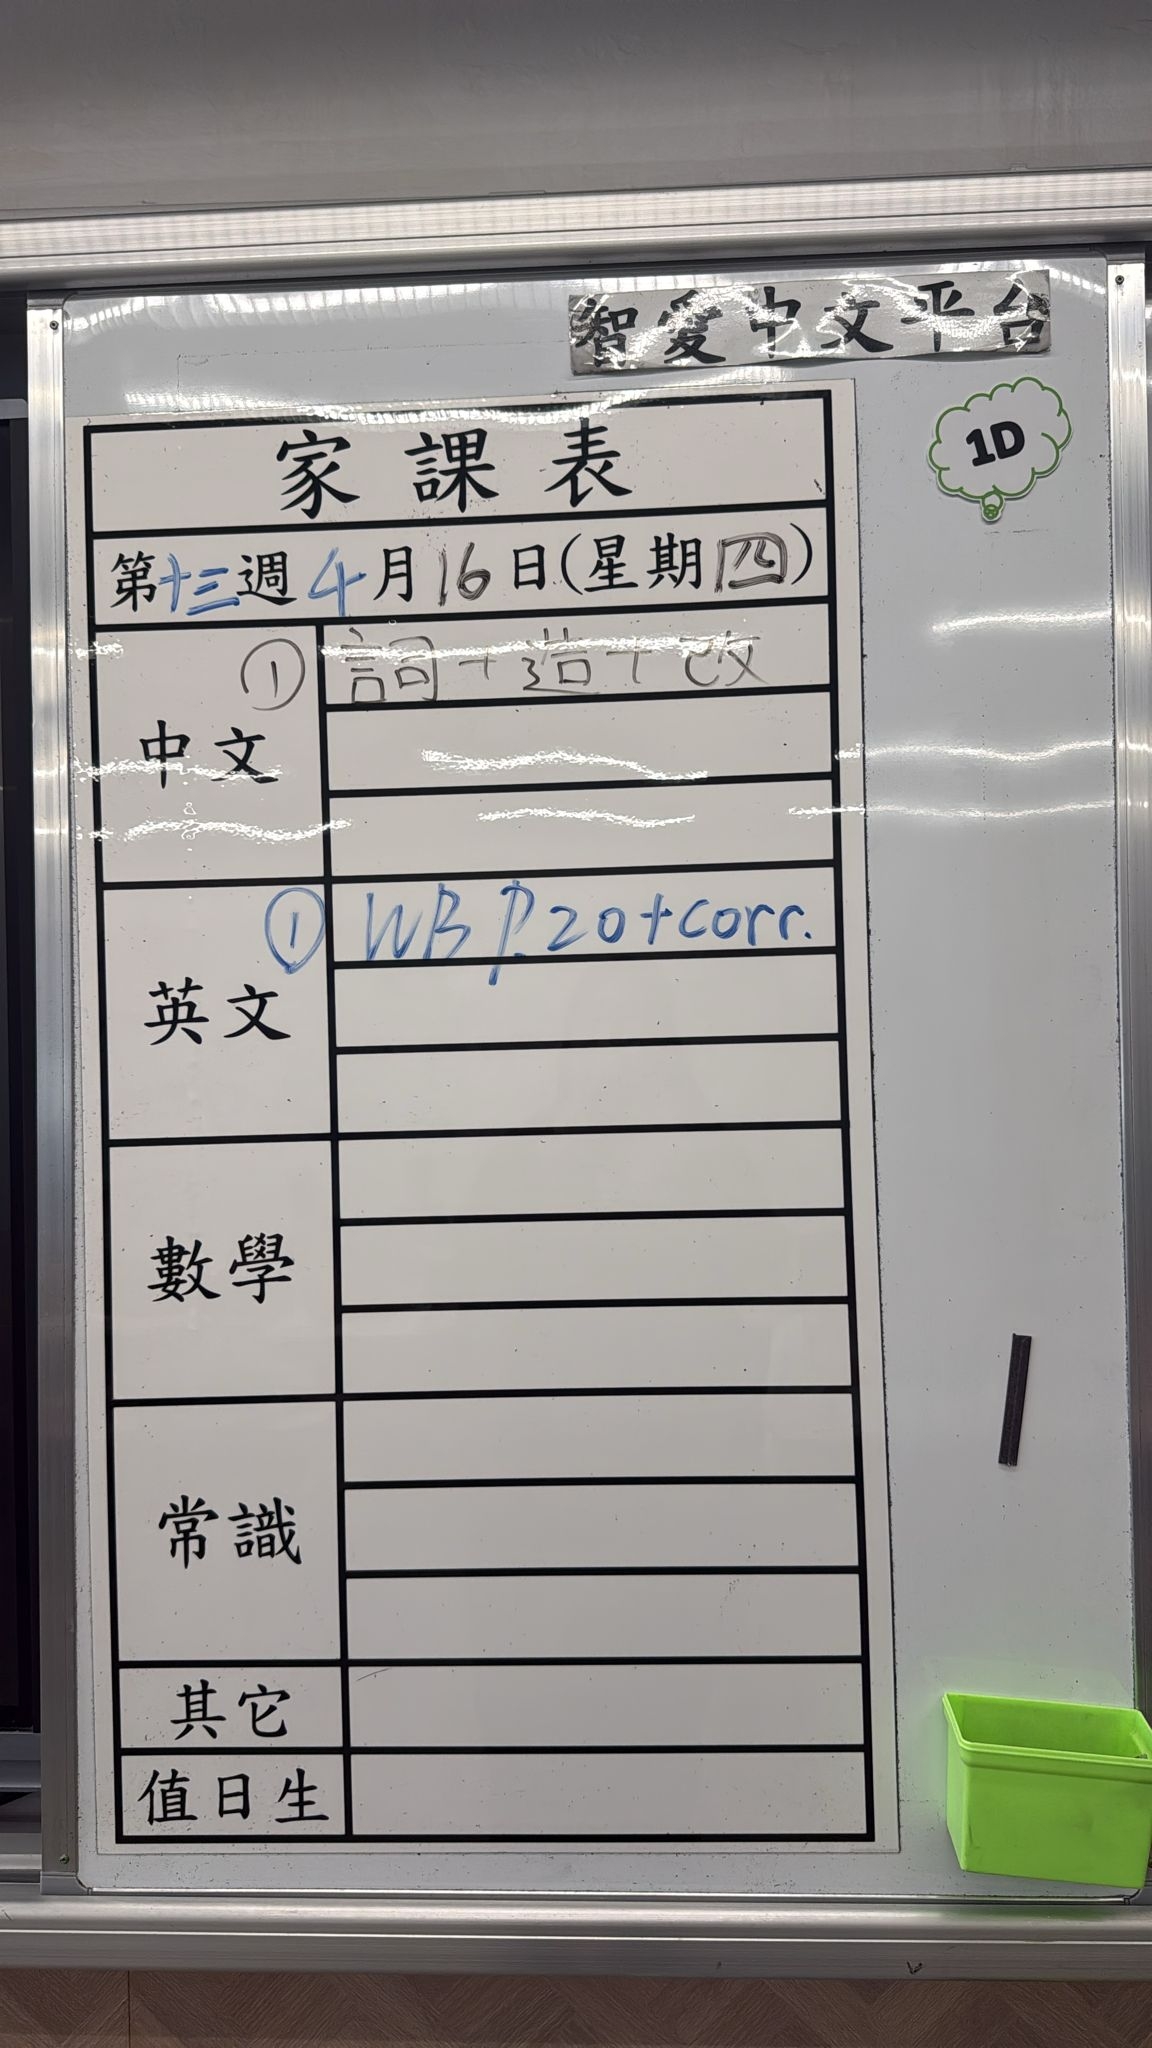 智愛中文平台
1D
家課表
第十三週4月16日(星期四)
中文
① 詞+造+改
英文
① WB P.20+corr.
數學
常識
其它
值日生